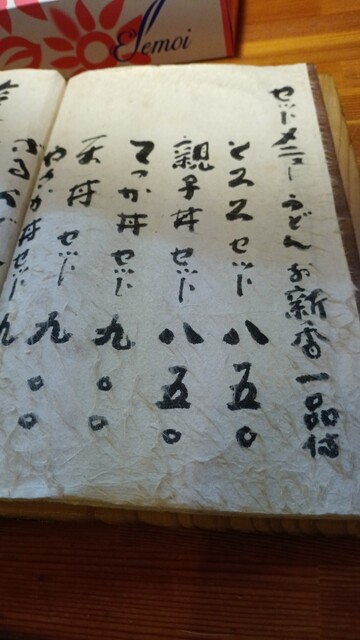 Elemoi
セットメニュー うどん お新香 一品付
とろろセット 八五〇
親子丼セット 八五〇
てっか丼セット 九〇〇
天丼セット 九〇〇